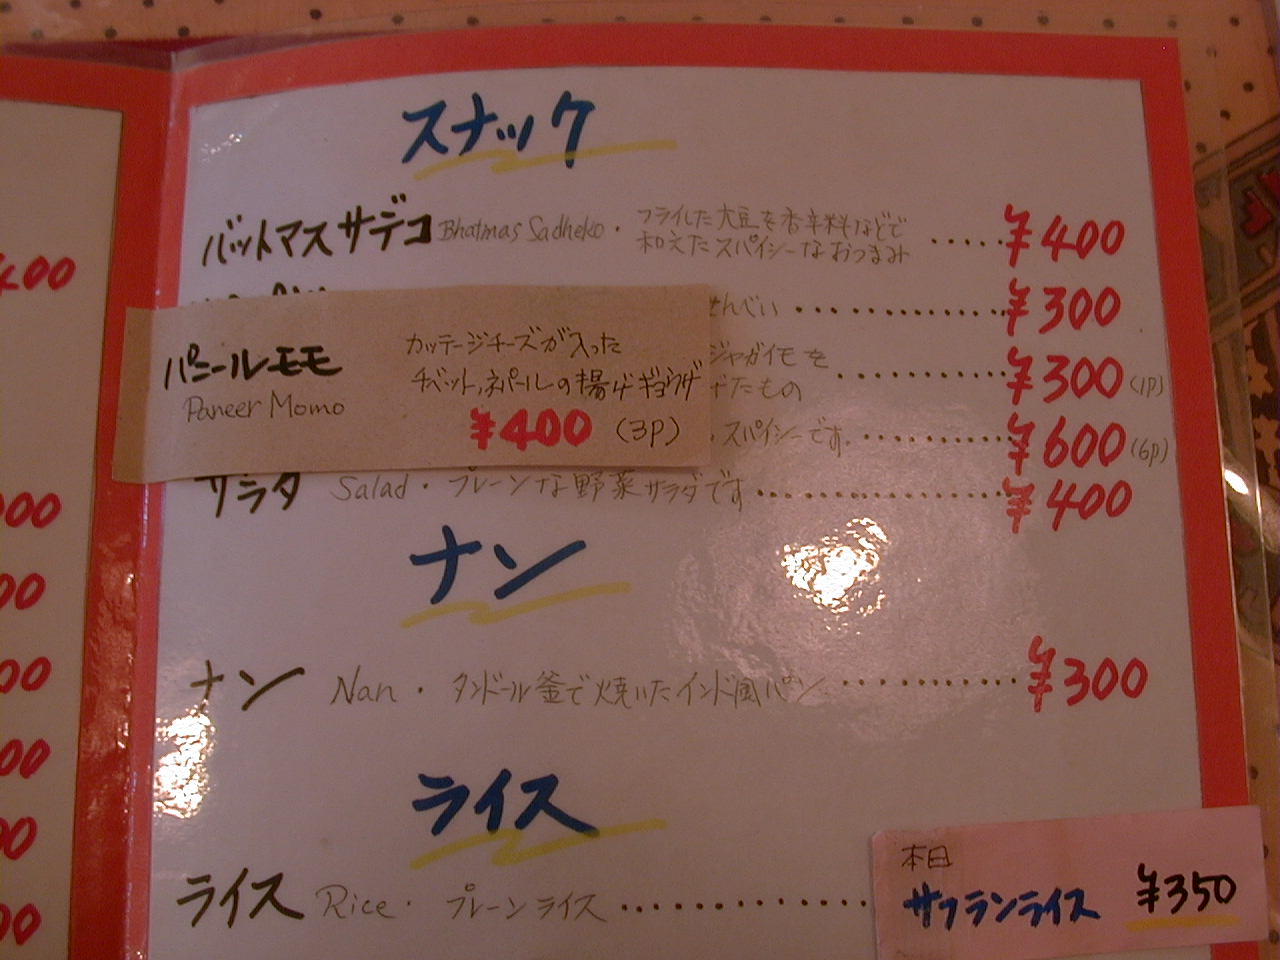 スナック
バットマスサデコ Bhatmas Sadheko・フライした大豆を香辛料などで
和えたスパイシーなおつまみ ……¥400
せんべい ……¥300
パニールモモ カッテージチーズが入った
Paneer Momo チベット、ネパールの揚げギョウザ
¥400 (3P)
ジャガイモを
げたもの ……¥300(1P)
スパイシーです。……¥600(6P)
サラダ Salad・プレーンな野菜サラダです……¥400
ナン
ナン Nan・タンドール釜で焼いたインド風パン……¥300
ライス
ライス Rice・プレーンライス……
本日
サフランライス ¥350
400
00
00
00
00
00
00